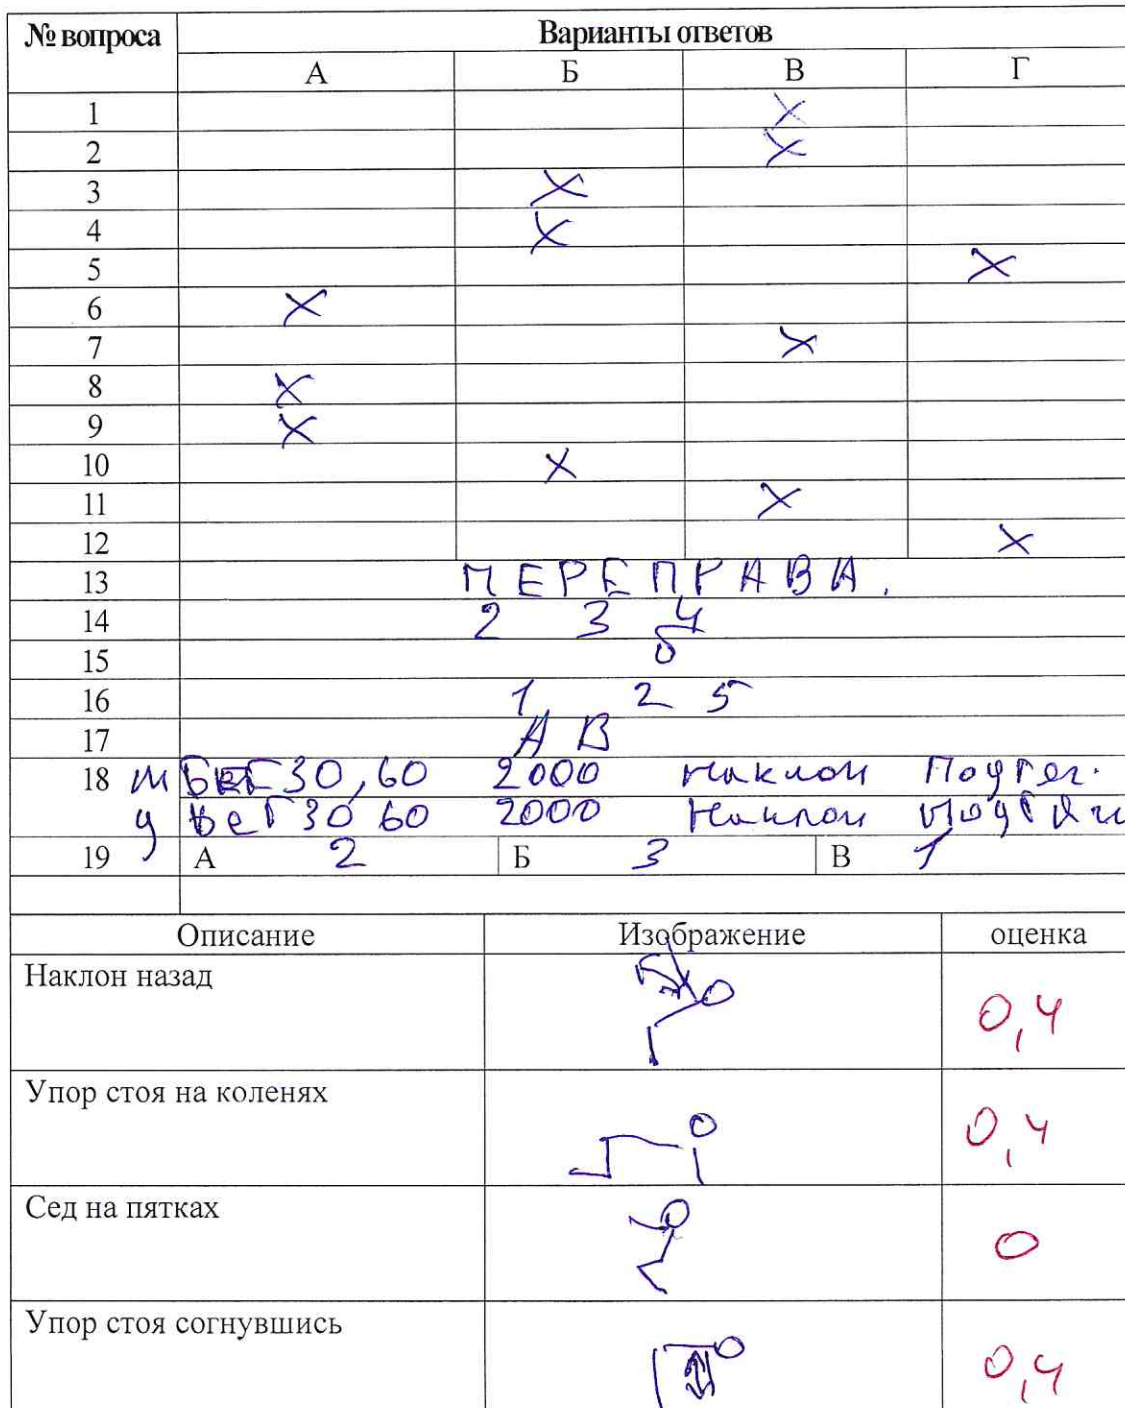 № вопроса Варианты ответов
А Б В Г
1 X
2 X
3 X
4 X
5 X
6 X
7 X
8 X
9 X
10 X
11 X
12 X
13 ПЕРЕПРАВА.
14 2 3 4
15 б
16 1, 2 5
17 А В
18 м Бег 30, 60 2000 наклон Подтяг.
Бег 30 60 2000 Наклон Подтяги
19 А 2 Б 3 В 1
Описание Изображение оценка
Наклон назад 0,4
Упор стоя на коленях 0,4
Сед на пятках 0
Упор стоя согнувшись 0,4